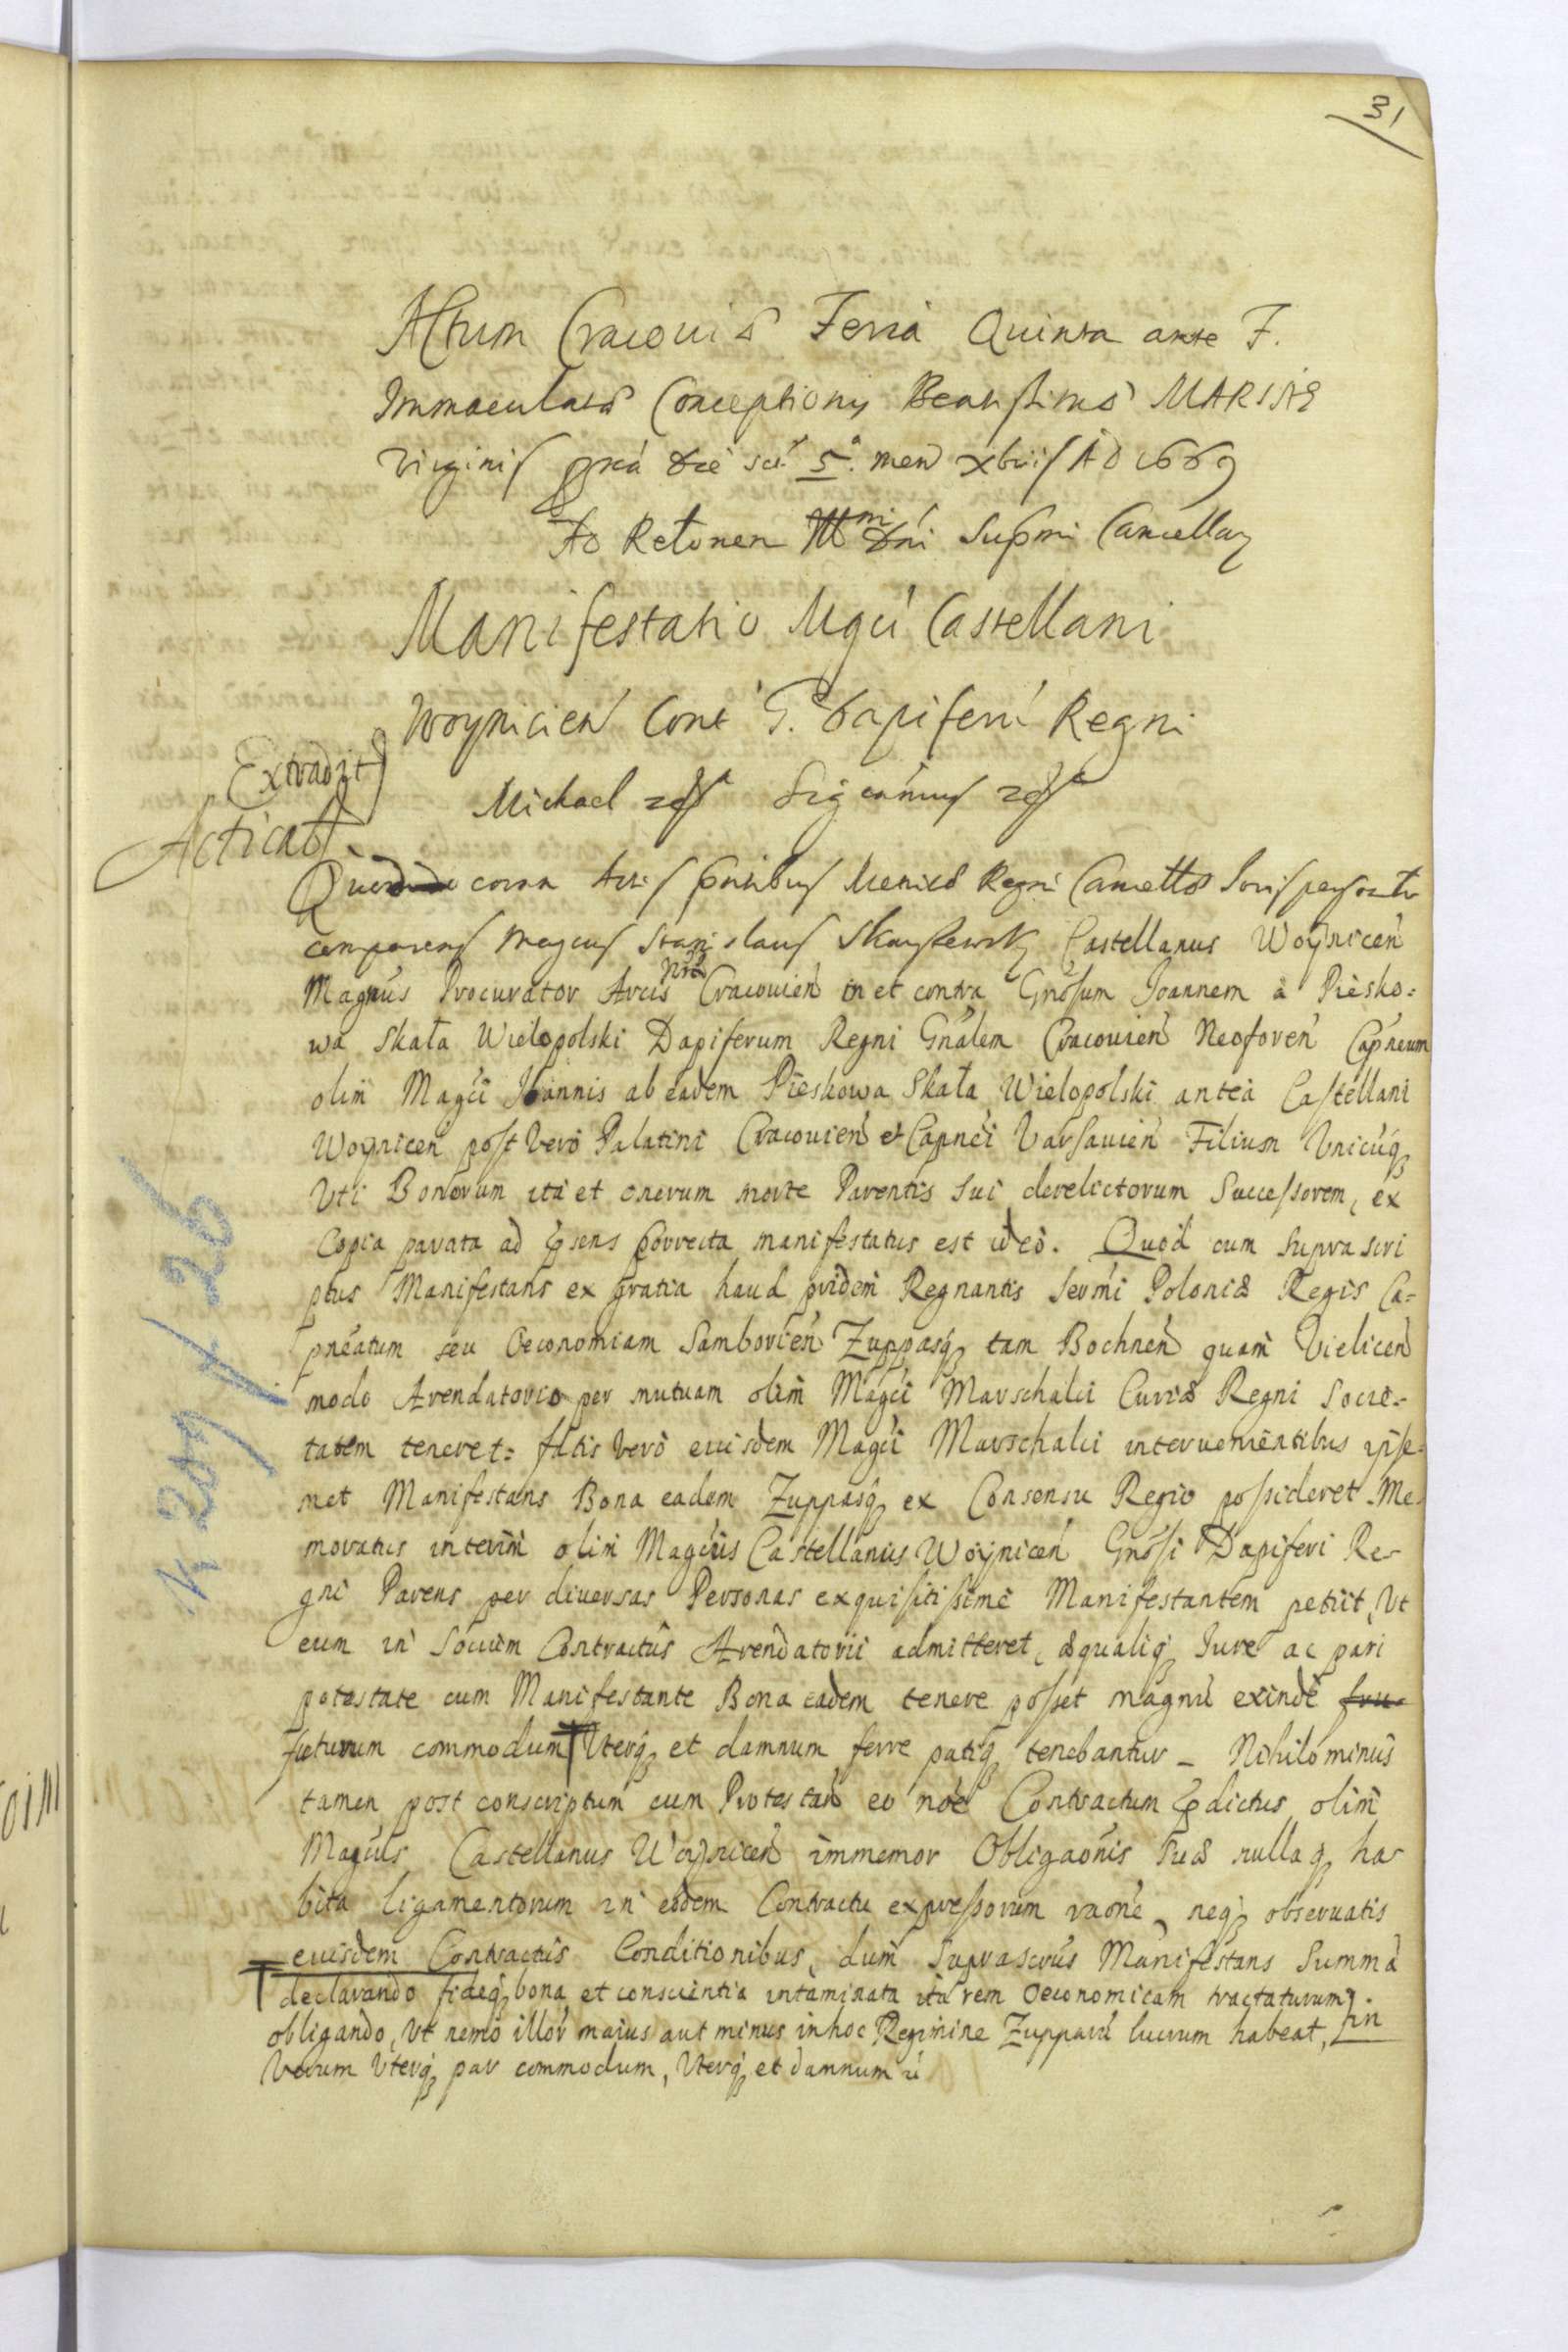 31
Actum Cracoviæ Feria Quinta ante F.
Immaculatæ Conceptionis Beatissimæ MARIAE
Virginis die 5ª men Xbris AD 1669
Ad Rełonem M Dni Supmi Cancellar
Manifestatio Mgci Castellani
Woynicień Cont G. Dapiferu Regni
Extradit
Michael Sigismus
Acticat
coram Actis Metrices Regni personaliter
comparens Magcus Stanislaus Skarszewsky Castellanus Woynicen
Magnus Procurator Arcis Cracouień in et contra Gnosum Joannem a Piesko=
wa Skała Wielopolski Dapiferum Regni Gnalem Cracouień Neoforeń Capneum
olim Magci Joannis ab eadem Pieskowa Skała Wielopolski antea Castellani
Woynicen post vero Palatini Cracouień et Capnei Varsauień Filium Vnicuq
Vti Bonorum ita et onerum morte Parentis sui derelictorum Successorem, ex
Copia parata ad psens porrecta manifestatus est ideo. Quod cum supra scri
ptus Manifestans ex gratia haud pridem Regnantis Sermi Poloniæ Regis Ca=
pneatum seu Oeconomiam Samborień Zuppasq tam Bochneń quam Vieliceń
modo Arendatorio per mutuam olim Magci Marschalci Curiæ Regni Socie=
tatem teneret= fatis vero eiusdem Magci Marschalci interuenientibus ipse=
met Manifestans Bona eadem Zuppasq ex Consensu Regio possideret. Me=
moratus interim olim Magcus Castellanus Woynicen Gnosi Dapiferi Re-
gni Parens per diuersas Personas exquisitissime Manifestantem petiit, Vt
eum in Socium Contractus Arendatorii admitteret, æqualiq Iure ac pari
potestate cum Manifestante Bona eadem tenere posset magnu exinde fru-
futurum commodum Vterq et damnum ferre patiq tenebantur - Nihilominus
tamen post conscriptum cum Protestań eo noe Contractum pdictus olim
Magcus Castellanus Woynicen immemor Obligaonis suæ nullaq ha-
bita ligamentorum in eodem Contractu expressorum raone, neq obseruatis
eiusdem Contractus Conditionibus, dum Suprascrus Manifestans Summa
declarando fideq bona et conscientia intaminata ita rem Oeconomicam tractaturum.
obligando, Vt nemo illor maius aut minus in hoc Regimine Zupparu lucrum habeat,
Verum Vterq par commodum, Vterq et damnum